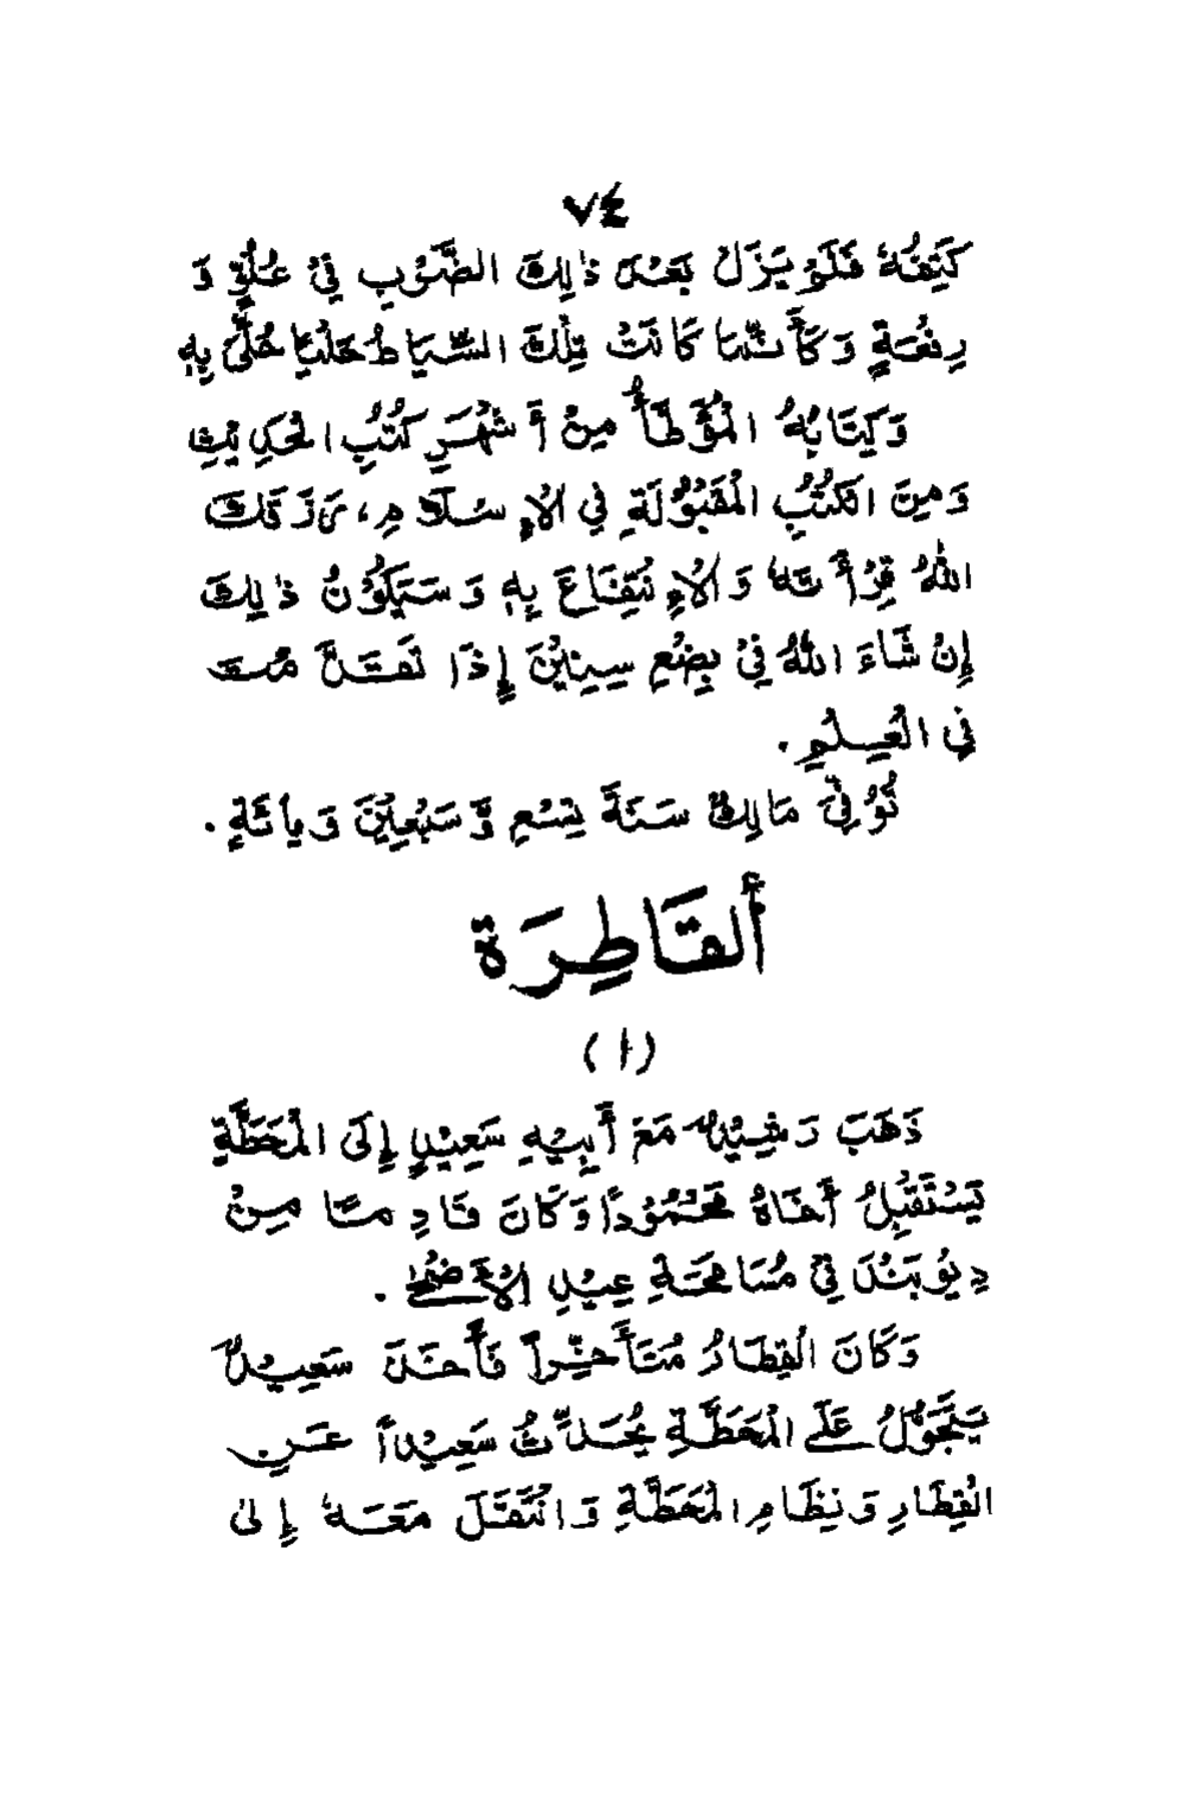 ٧٤
كَتِفُهُ فَلَمْ يَزَلْ بَعْدَ ذٰلِكَ الضَّرْبِ فِيْ عُلُوٍّ وَ
رِفْعَةٍ وَكَأَنَّمَا كَانَتْ تِلْكَ السِّيَاطُ حَلْيًا حُلِّيَ بِهٖ
وَكِتَابُهُ الْمُؤَطَّأُ مِنْ أَشْهَرِ كُتُبِ الْحَدِيْثِ
وَمِنَ الْكُتُبِ الْمَقْبُوْلَةِ فِي الْإِسْلَامِ، رَزَقَكَ
اللّٰهُ قِرْأَتَهُ وَالْاِنْتِفَاعَ بِهٖ وَسَيَكُوْنُ ذٰلِكَ
إِنْ شَاءَ اللّٰهُ فِيْ بِضْعِ سِنِيْنَ إِذَا تَقَدَّمْتَ
فِي الْعِلْمِ.
تُوُفِّيَ مَالِكٌ سَنَةَ تِسْعٍ وَّسَبْعِيْنَ وَمِأَئَةٍ.
أَلقَاطِرَة
(١)
ذَهَبَ رَشِيْدٌ مَعَ أَبِيْهِ سَعِيْدٍ إِلَى الْمَحَطَّةِ
يَسْتَقْبِلُ أَخَاهُ مَحْمُوْدًا وَكَانَ قَادِمًا مِنْ
دِيُوْبَنْدَ فِيْ مُسَامَحَةِ عِيْدِ الْأَضْحٰى.
وَكَانَ الْقِطَارُ مُتَأَخِّراً فَأَخَذَ سَعِيْدٌ
يَتَجَوَّلُ عَلَى الْمَحَطَّةِ يُحَدِّثُ سَعِيْداً عَنِ
الْقِطَارِ وَنِظَامِ الْمَحَطَّةِ وَانْتَقَلَ مَعَهُ إِلىٰ